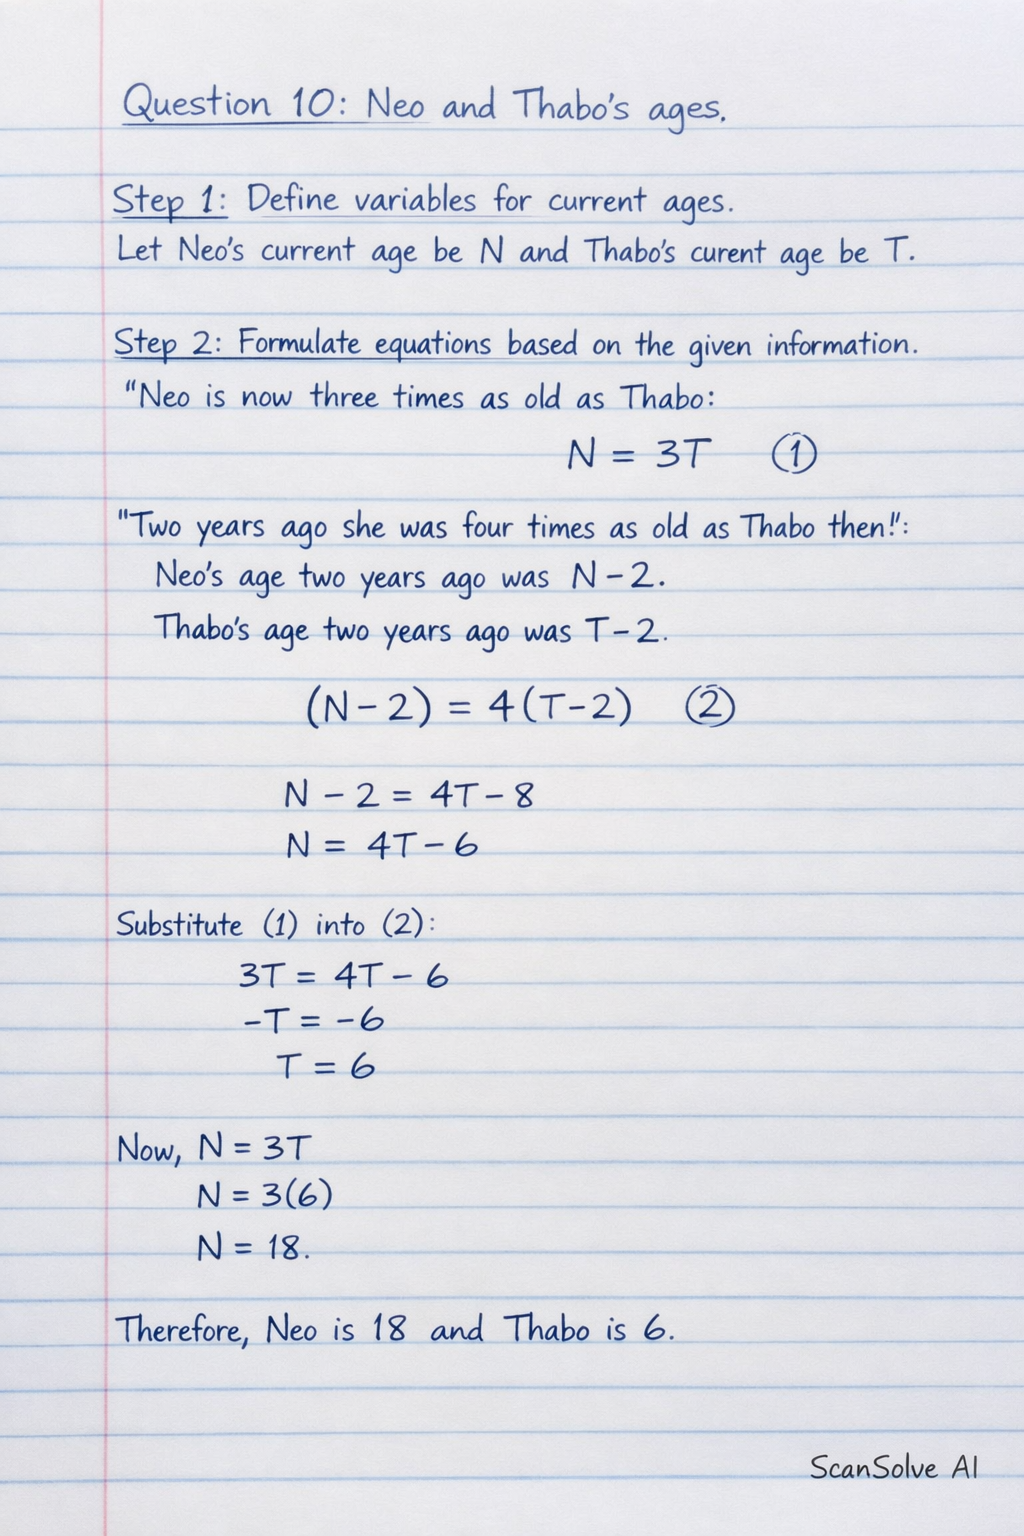 Question 10: Neo and Thabo's ages.
Step 1: Define variables for current ages.
Let Neo's current age be N and Thabo's curent age be T.
Step 2: Formulate equations based on the given information.
"Neo is now three times as old as Thabo:
N = 3T ①
"Two years ago she was four times as old as Thabo then!":
Neo's age two years ago was N - 2.
Thabo's age two years ago was T - 2.
(N - 2) = 4(T - 2) ②
N - 2 = 4T - 8
N = 4T - 6
Substitute (1) into (2):
3T = 4T - 6
-T = -6
T = 6
Now, N = 3T
N = 3(6)
N = 18.
Therefore, Neo is 18 and Thabo is 6.
ScanSolve AI